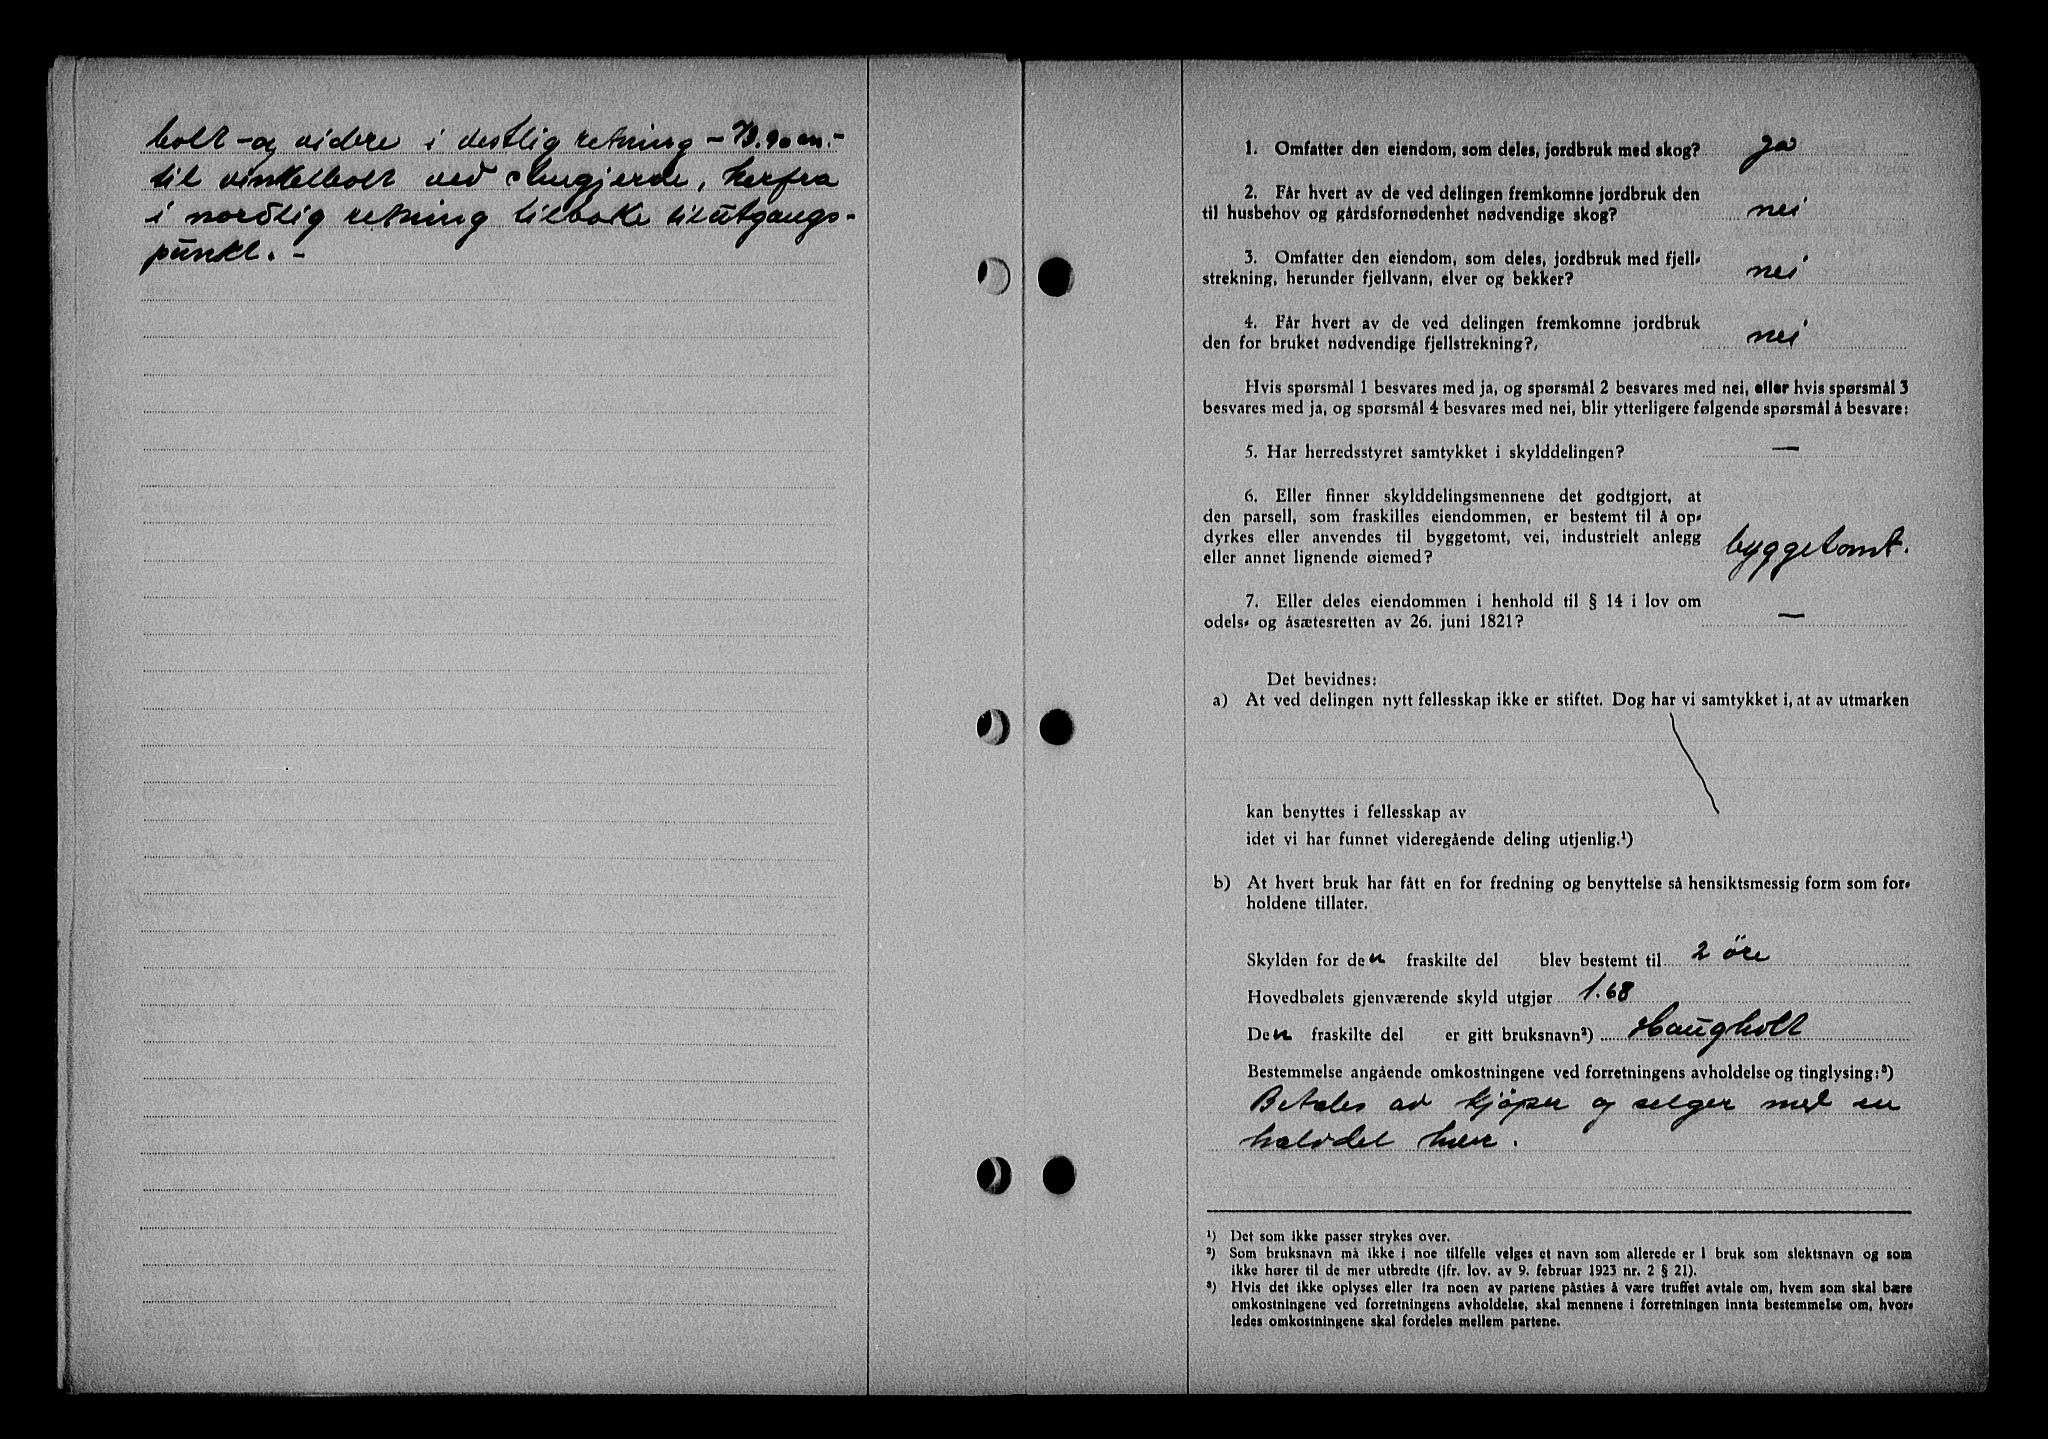 bolt - og videre i vestlig retning -
til vinkelbolt ved skigjerde, herfra
i nordlig retning tilbake til utgangs-
punkt. -
1. Omfatter den eiendom, som deles, jordbruk med skog? ja
2. Får hvert av de ved delingen fremkomne jordbruk den
til husbehov og gårdsfornødenhet nødvendige skog? nei
3. Omfatter den eiendom, som deles, jordbruk med fjell-
strekning, herunder fjellvann, elver og bekker? nei
4. Får hvert av de ved delingen fremkomne jordbruk
den for bruket nødvendige fjellstrekning?, nei
Hvis spørsmål 1 besvares med ja, og spørsmål 2 besvares med nei, eller hvis spørsmål 3
besvares med ja, og spørsmål 4 besvares med nei, blir ytterligere følgende spørsmål å besvare:
5. Har herredsstyret samtykket i skylddelingen? —
6. Eller finner skylddelingsmennene det godtgjort, at
den parsell, som fraskilles eiendommen, er bestemt til å op-
dyrkes eller anvendes til byggetomt, vei, industrielt anlegg
eller annet lignende øiemed? byggetomt.
7. Eller deles eiendommen i henhold til § 14 i lov om
odels- og åsætesretten av 26. juni 1821? —
Det bevidnes:
a) At ved delingen nytt fellesskap ikke er stiftet. Dog har vi samtykket i, at av utmarken
kan benyttes i fellesskap av
idet vi har funnet videregående deling utjenlig.¹)
b) At hvert bruk har fått en for fredning og benyttelse så hensiktsmessig form som for-
holdene tillater.
Skylden for den fraskilte del blev bestemt til 2 öre
Hovedbølets gjenværende skyld utgjør 1.68
Den fraskilte del er gitt bruksnavn²) Haugholt
Bestemmelse angående omkostningene ved forretningens avholdelse og tinglysing:³)
Betales av kjöper og selger med en
halvdel hver.
¹) Det som ikke passer strykes over.
²) Som bruksnavn må ikke i noe tilfelle velges et navn som allerede er i bruk som slektsnavn og som
ikke hører til de mer utbredte (jfr. lov. av 9. februar 1923 nr. 2 § 21).
³) Hvis det ikke oplyses eller fra noen av partene påståes å være truffet avtale om, hvem som skal bære
omkostningene ved forretningens avholdelse, skal mennene i forretningen innta bestemmelse om, hvor-
ledes omkostningene skal fordeles mellem partene.